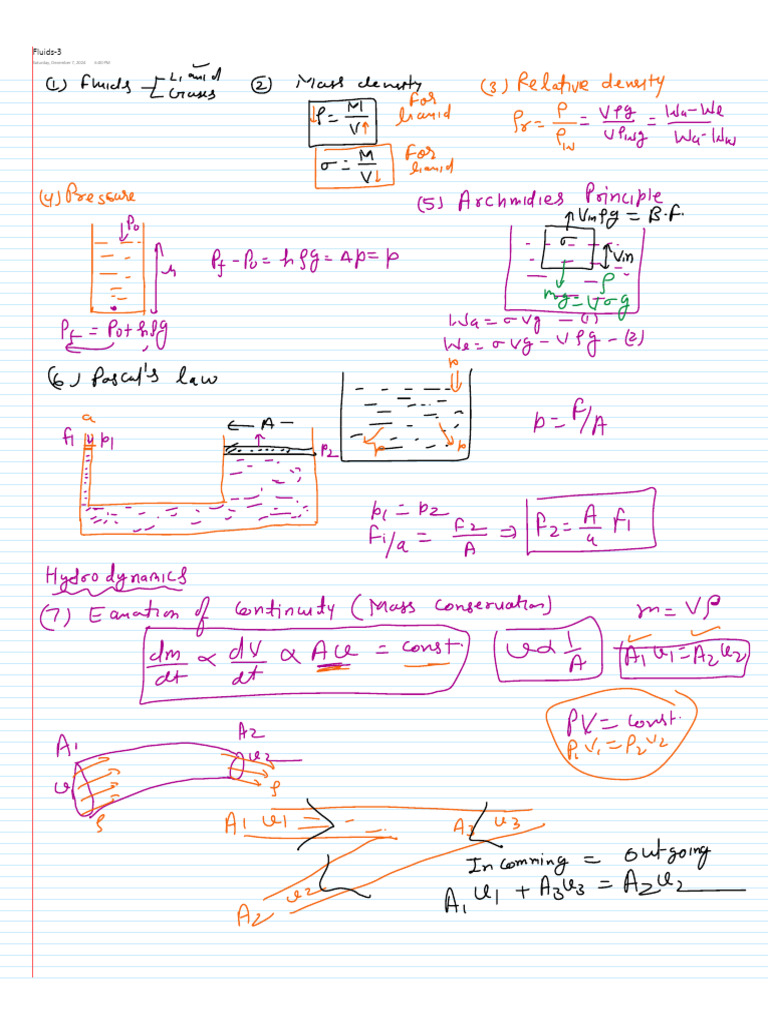 Fluids-3
Saturday, December 7, 2024 4:00 PM
(1) Fluids - Liquid
Gases
(2) Mass density
ρ = M/V For liquid
σ = M/V For liquid
(3) Relative density
ρr = ρ/ρw = Vρg/Vρwg = (Wa-We)/(Wa-Ww)
(4) Pressure
P0
h
Pf - P0 = hρg = Δp = p
Pf = P0 + hρg
(5) Archmidies Principle
Vinρg = B.F.
σ
Vin
ρ
mg = Vσg
Wa = σVg - (1)
We = σVg - Vρg - (2)
(6) Pascal's law
a
f1 p1
A
p2
p
p p
p = F/A
p1 = p2
F1/a = F2/A ⇒ F2 = A/a f1
Hydrodynamics
(7) Equation of continuity (Mass conservation)
m = Vρ
dm/dt ∝ dV/dt ∝ Av = const.
v ∝ 1/A
A1v1 = A2v2
PV = const.
P1V1 = P2V2
A1
v
ρ
A2
v2
ρ
A1 v1
A3 v3
A2 v2
Incomming = outgoing
A1v1 + A3v3 = A2v2